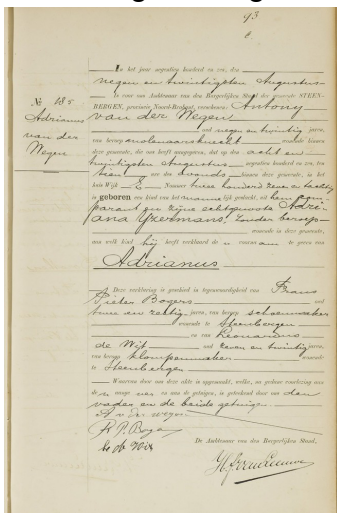 93
In het jaar negentien honderd en zes, den
negen en twintigsten Augustus
is voor ons Ambtenaar van den Burgerlijken Stand der gemeente STEEN-
BERGEN, provincie Noord-Brabant, verschenen: Antony
van der Wegen
oud negen en twintig jaren,
van beroep molenaarsknecht wonende binnen
deze gemeente, die ons heeft aangegeven, dat op den acht en
twintigsten Augustus negentien honderd en zes, ten
tien ure des avonds binnen deze gemeente, in het
huis Wijk E Nummer twee honderd zeven en tachtig
is geboren een kind van het mannelijk geslacht, uit hem comparant en zijne echtgenoote Adri-
ana IJzermans, zonder beroep
wonende in deze gemeente,
aan welk kind hij heeft verklaard de voornaam te geven van
Adrianus
No 185
Adrianus
van der
Wegen
Deze verklaring is geschied in tegenwoordigheid van Frans
Pieter Bogers oud
twee en zestig jaren, van beroep schoenmaker
wonende te Steenbergen
en van Leonardus
de Wijt oud zeven en twintig jaren,
van beroep klompenmaker wonende
te Steenbergen
Waarvan door ons deze akte is opgemaakt, welke, na gedane voorlezing aan
is geteekend door ons, den
vader en de beide getuigen.
A v der wegen
De Ambtenaar van den Burgerlijken Stand,